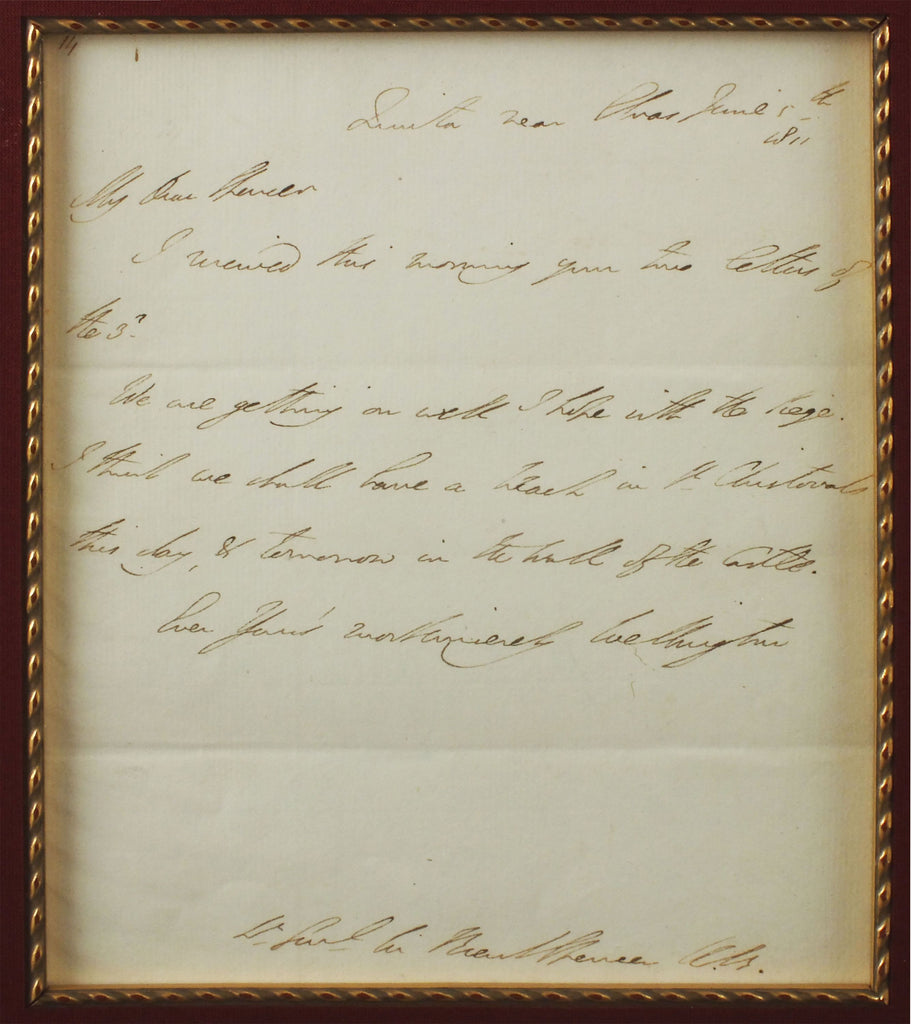 Quinta near Elvas June 5th
1811
My Dear Spencer
I received this morning your two letters of
the 3d.
We are getting on well I hope with the siege.
I think we shall have a breach in St Christovals
this day, & tomorrow in the wall of the Castle.
Ever Yours most sincerely Wellington
Lt Genl Sir Brent Spencer K.B.